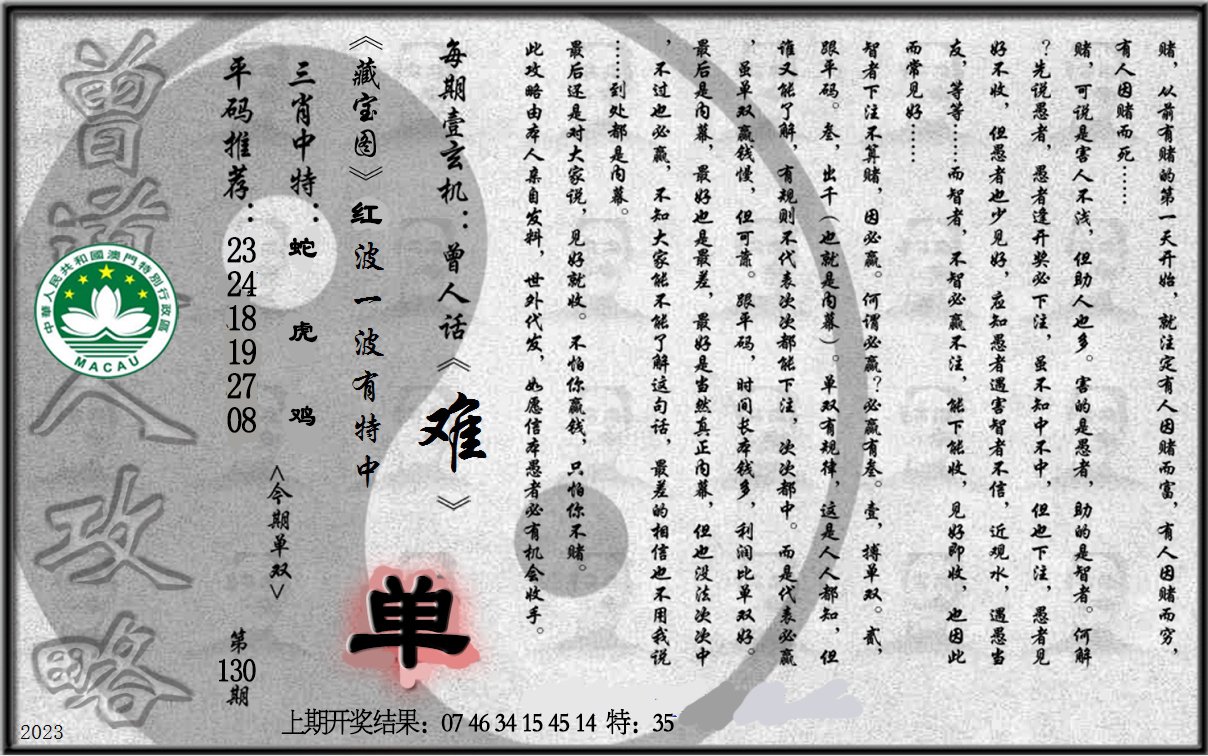 赌，从前有赌的第一天开始，就注定有人因赌而富，有人因赌而穷，
有人因赌而死……
赌，可说是害人不浅，但助人也多。害的是愚者，助的是智者。何解
？先说愚者，愚者逢开奖必下注，虽不知中不中，但也下注，愚者见
好不收，但愚者也少见好，应知愚者遇害智者不信，近观水，遇愚当
友，等等……而智者，不智必赢不注，能下能收，见好即收，也因此
而常见好……
智者下注不算赌，因必赢。何谓必赢？必赢有叁。壹，搏单双。贰，
跟平码。叁，出千（也就是内幕）。单双有规律，这是人人都知，但
谁又能了解，有规则不代表次次都能下注，次次都中。而是代表必赢
，虽单双赢钱慢，但可靠。跟平码，时间长本钱多，利润比单双好。
最后是内幕，最好也是最差，最好是当然真正内幕，但也没法次次中
，不过也必赢，不知大家能不能了解这句话，最差的相信也不用我说
……到处都是内幕。
最后还是对大家说，见好就收。不怕你赢钱，只怕你不赌。
此攻略由本人亲自发料，世外代发，如愿信本愚者必有机会收手。
每期壹玄机：曾人话《难》
《藏宝图》红波一波有特中
单
三肖中特：蛇 虎 鸡
<今期单双>
平码推荐：23 24 18 19 27 08
第130期
曾道人攻略
中華人民共和國澳門特別行政區
MACAU
上期开奖结果：07 46 34 15 45 14 特：35
2023